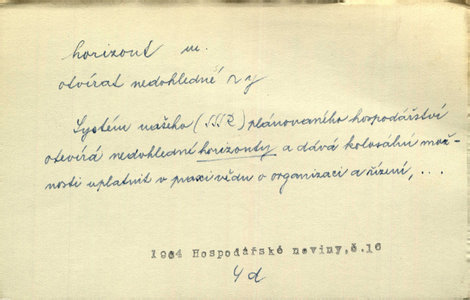 horizont m.
otvírat nedohledné ~ y
Systém našeho (SSSR) plánovaného hospodářství
otevírá nedohlední horizonty a dává kolosální mož-
nosti uplatnit v praxi vědu o organizaci a řízení, ...
1964 Hospodářské noviny,č.16
4d